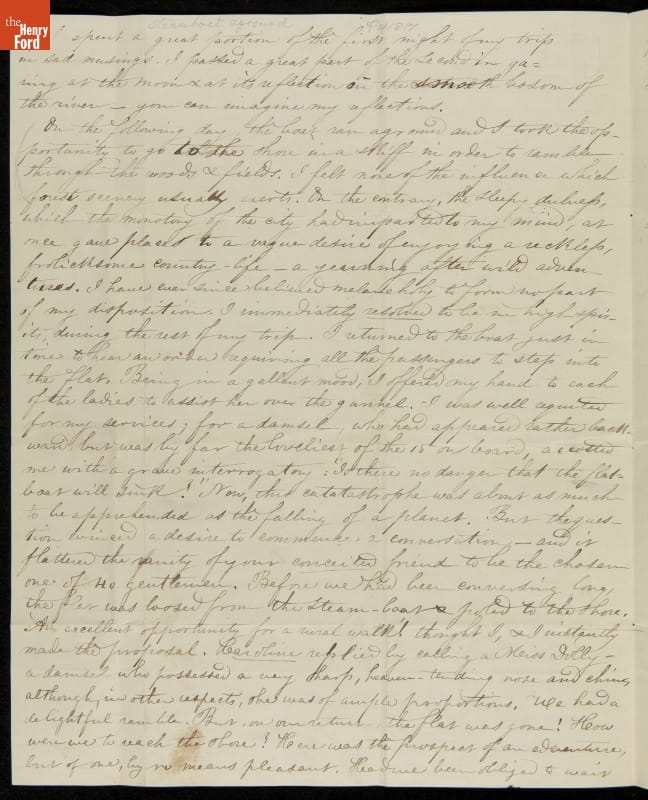 the
Henry
Ford
Steam boat aground
I spent a great portion of the first night of my trip
in sad musings. I passed a great part of the second in ga-
zing at the moon & at its reflection in the smooth bosom of
the river — you can imagine my reflections.
On the following day, the boat ran aground and I took the op-
portunity to go to the shore in a skiff in order to ramble
through the woods & fields. I felt none of the influence which
forest scenery usually exerts. On the contrary, the sleepy dulness,
which the monotony of the city had imparted to my mind, at
once gave place to a vague desire of enjoying a reckless,
frolicksome country-life — a yearning after wild adven-
tures. I have ever since believed melancholy to form no part
of my disposition. I immediately resolved to be in high spir-
its, during the rest of my trip. I returned to the boat just in
time to hear an order requiring all the passengers to step into
the flat. Being in a gallant mood, I offered my hand to each
of the ladies to assist her over the gunnel. I was well requited
for my services; for a damsel, who had appeared rather back-
ward but was by far the loveliest of the 15 on board, accosted
me with a grave interrogatory: "Is there no danger that the flat-
boat will sink?" Now, this catatastrophe was about as much
to be apprehended as the falling of a planet. But the ques-
tion evinced a desire to commence a conversation — and it
flattered the vanity of your conceited friend to be the chosen
one of 40 gentlemen. Before we had been conversing long,
the flat was loosed from the steam-boat & poled to the shore.
An excellent opportunity for a rural walk! thought I, & I instantly
made the proposal. Caroline replied by calling a Miss Dolly —
a damsel who possessed a very sharp, heaven-tending nose and chin,
although, in other respects, she was of ample proportions. We had a
delightful ramble. But, on our return, the flat was gone! How
were we to reach the shore? Here was the prospect of an adventure,
but of one, by no means pleasant. Had we been obliged to wait